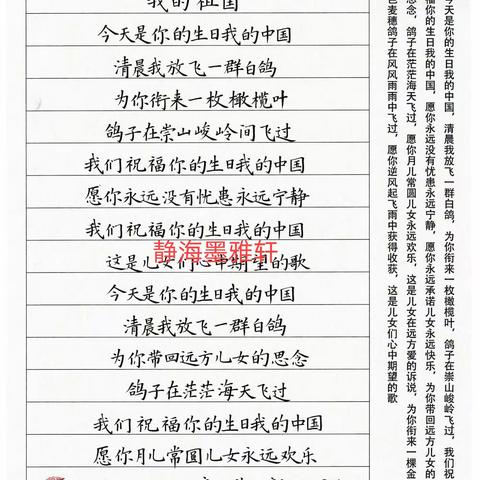 我的祖国
今天是你的生日我的中国
清晨我放飞一群白鸽
为你衔来一枚橄榄叶
鸽子在崇山峻岭间飞过
我们祝福你的生日我的中国
愿你永远没有忧患永远宁静
我们祝福你的生日我的中国
这是儿女们心中期望的歌
今天是你的生日我的中国
清晨我放飞一群白鸽
为你带回远方儿女的思念
鸽子在茫茫海天飞过
我们祝福你的生日我的中国
愿你月儿常圆儿女永远欢乐
静海墨雅轩
今天是你的生日我的中国，清晨我放飞一群白鸽，为你衔来一枚橄榄叶，鸽子在崇山峻岭飞过，我们祝
福你的生日我的中国，愿你永远没有忧患永远宁静，愿你永远承诺儿女永远快乐，为你带回远方儿女的
思念，鸽子在茫茫海天飞过，愿你月儿常圆儿女永远欢乐，这是儿女在远方爱的诉说，为你衔来一棵金
色麦穗鸽子在风风雨雨中飞过，愿你逆风起飞雨中获得收获，这是儿女们心中期望的歌